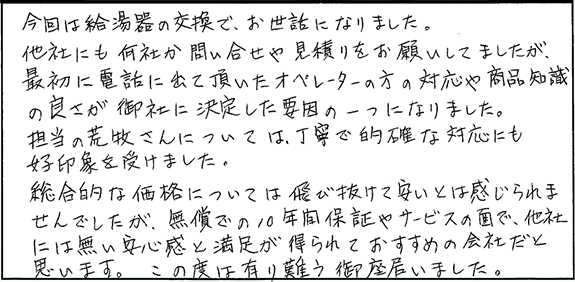 今回は給湯器の交換で、お世話になりました。
他社にも何社か問い合せや見積りをお願いしてましたが、
最初に電話に出て頂いたオペレーターの方の対応や商品知識
の良さが御社に決定した要因の一つになりました。
担当の荒牧さんについては、丁寧で的確な対応にも
好印象を受けました。
総合的な価格については飛び抜けて安いとは感じられま
せんでしたが、無償での10年間保証やサービスの面で、他社
には無い安心感と満足が得られておすすめの会社だと
思います。この度は有り難う御座居いました。